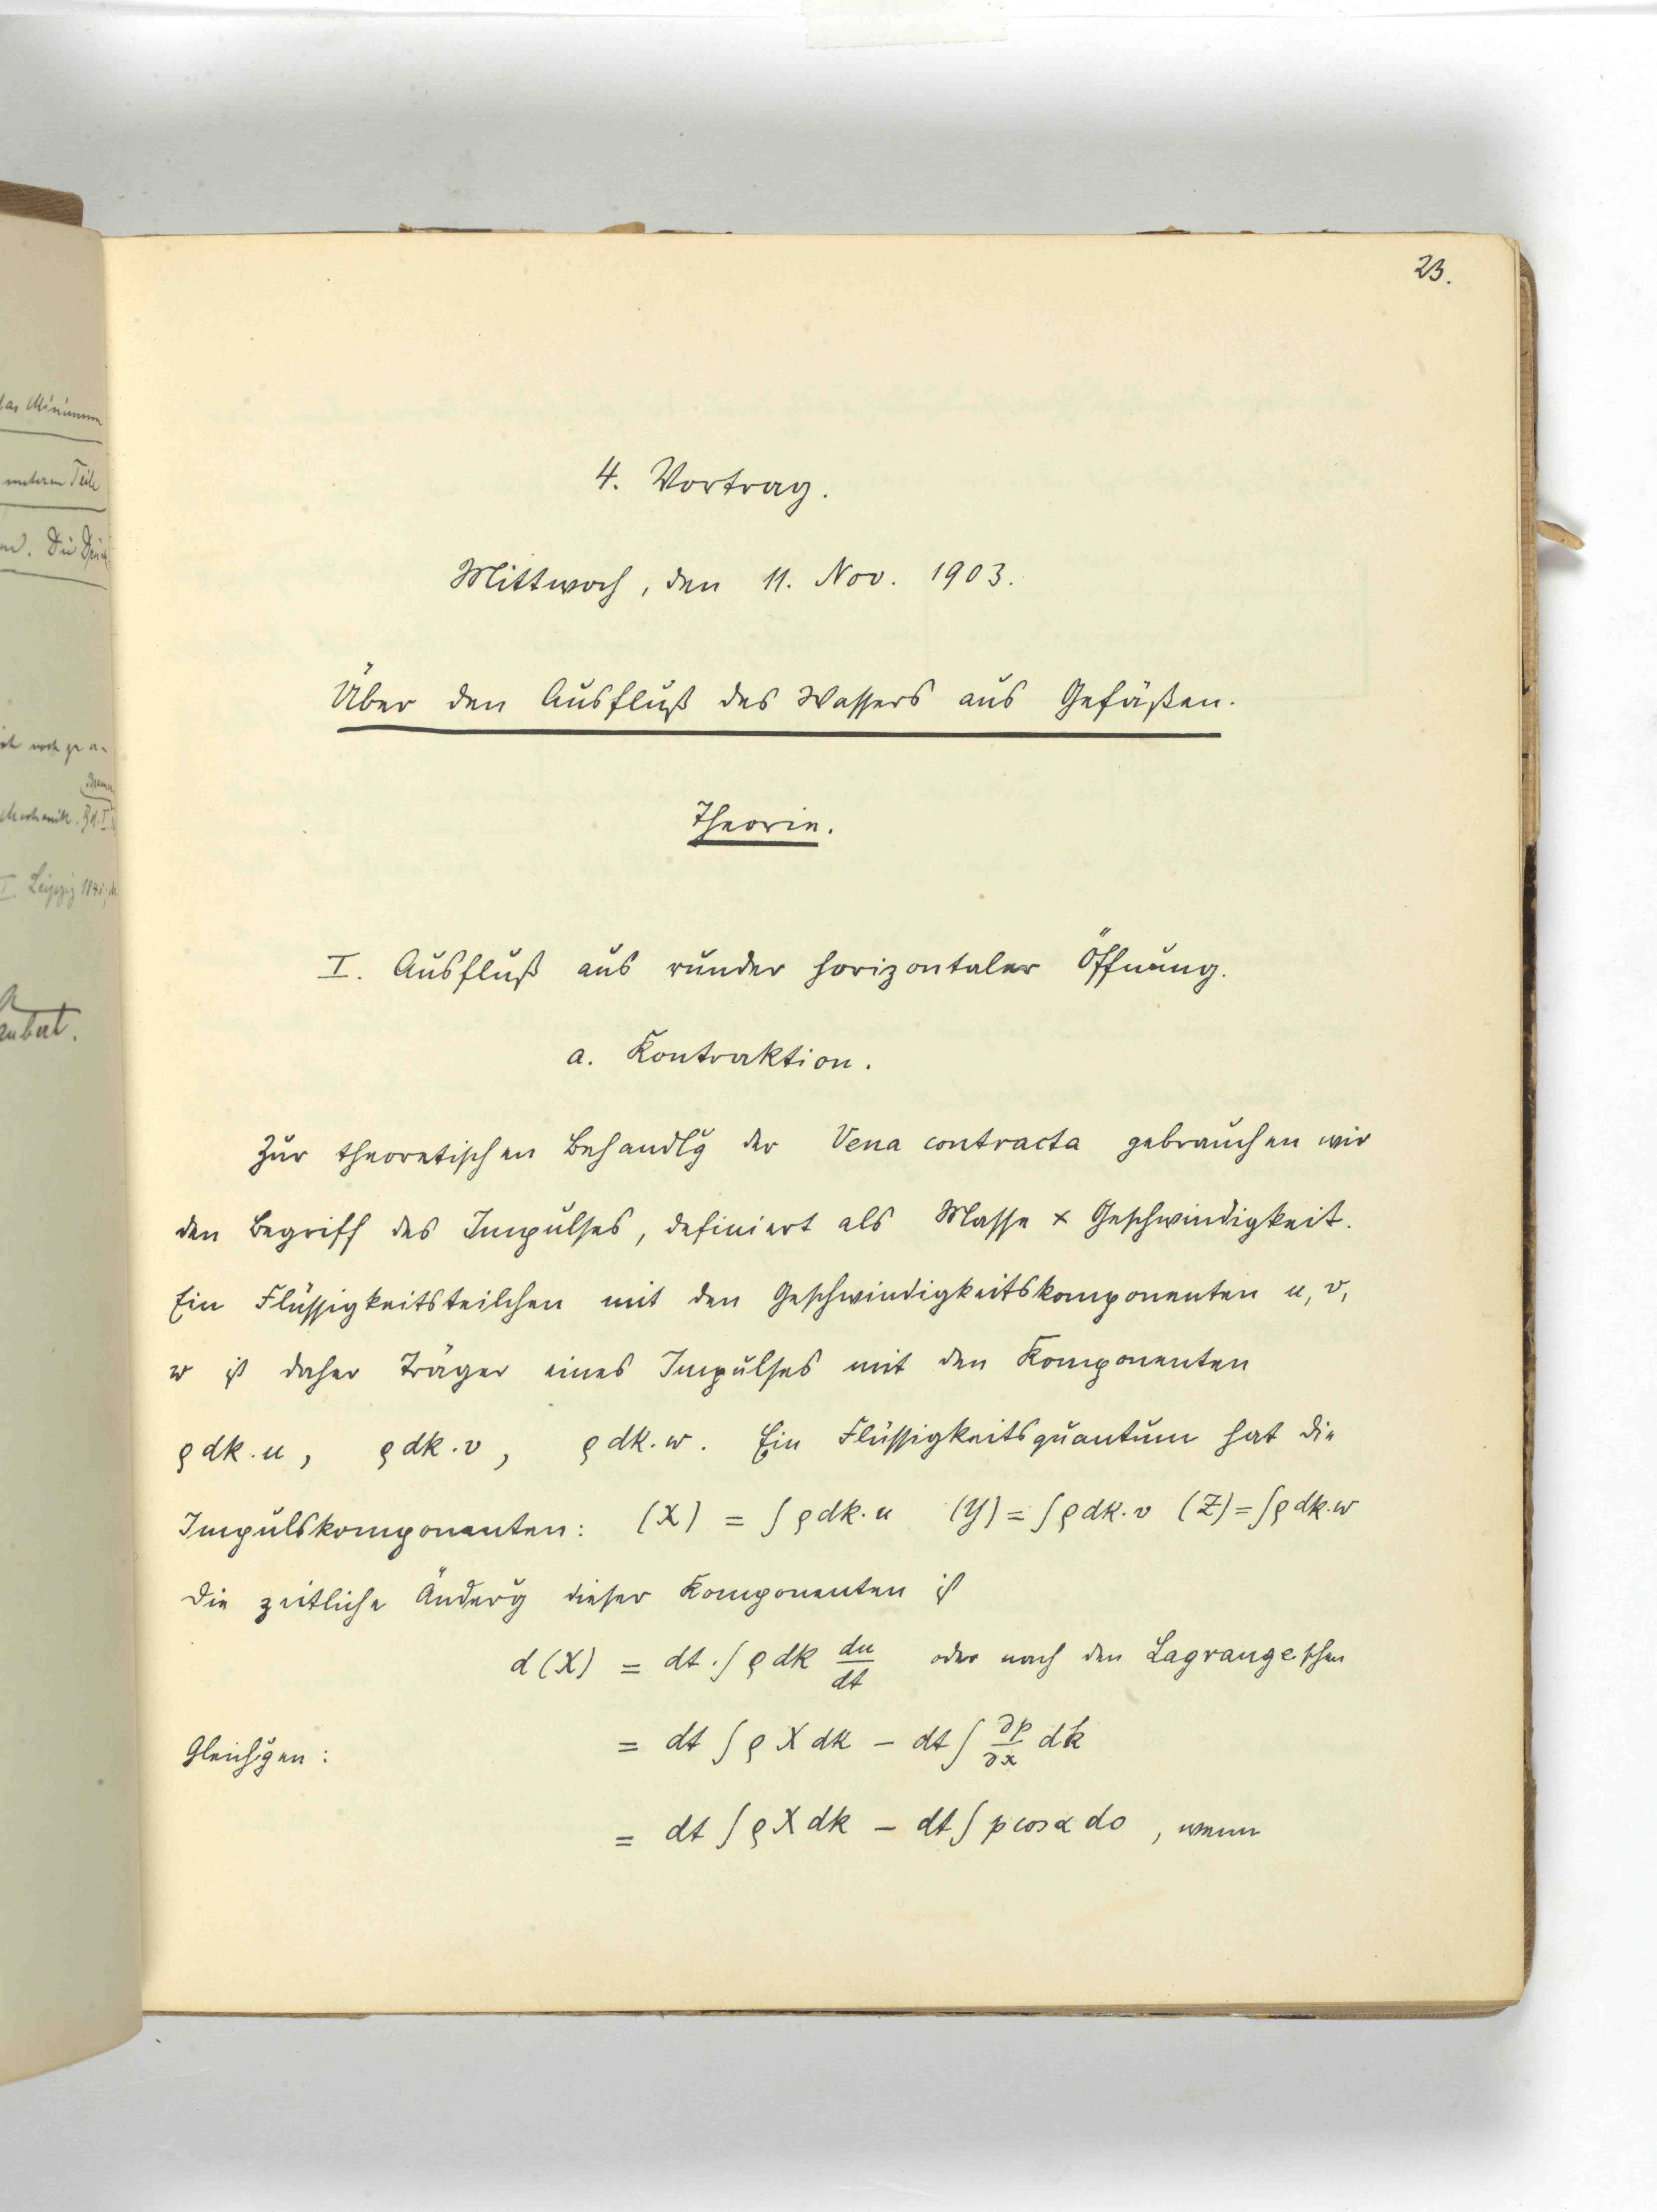 das Minimum
unteren Teile
Leipzig
23.
4. Vortrag.
Mittwoch, den 11. Nov. 1903.
Über den Ausfluß des Wassers aus Gefäßen.
Theorie.
I. Ausfluß aus runder horizontaler Öffnung.
a. Kontraktion.
Zur theoretischen Behandlg der Vena contracta gebrauchen wir
den Begriff des Impulses, definiert als Masse × Geschwindigkeit.
Ein Flüssigkeitsteilchen mit den Geschwindigkeitskomponenten u, v,
w ist daher Träger eines Impulses mit den Komponenten
ρ dk . u, ρ dk . v, ρ dk . w. Ein Flüssigkeitsquantum hat die
Impulskomponenten: (X) = ∫ ρ dk . u (Y) = ∫ ρ dk . v (Z) = ∫ ρ dk . w
Die zeitliche Änderg dieser Komponenten ist
d (X) = dt . ∫ ρ dk du/dt oder nach den Lagrangeschen
Gleichgen: = dt ∫ ρ X dk – dt ∫ ∂p/∂x dk
= dt ∫ ρ X dk – dt ∫ p cos α do, wenn